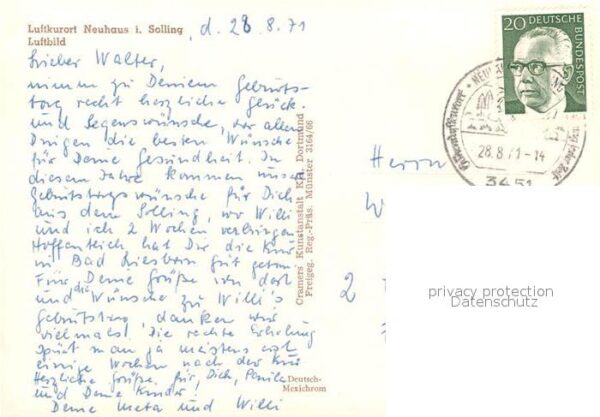 Luftkurort Neuhaus i. Solling
Luftbild
, d. 28.8.71
Lieber Walter,
nimm zu Deinem Geburts-
tag recht herzliche Glück-
und Segenswünsche, vor allen
Dingen die besten Wünsche
für Deine Gesundheit. In
diesem Jahre kommen unsere
Geburtstagswünsche für Dich
aus dem Solling, wo Willi
und ich 2 Wochen verbringen
Hoffentlich hat Dir die Kur
in Bad gut getan.
Für Deine Grüße von dort
und die Wünsche zu Willi's
Geburtstag danken wir
vielmals. Die rechte Erholung
spürt man ja meistens erst
einige Wochen nach der Kur
Herzliche Grüße für Dich,
und Deine Kinder
Deine Meta und Willi
Cramers Kunstanstalt KG. Dortmund
Freigeg. Reg.-Präs. Münster 3164/66
Deutsch-
Mexichrom
20 DEUTSCHE
BUNDESPOST
28.8.71-14
3451
Herrn
W
2
privacy protection
Datenschutz